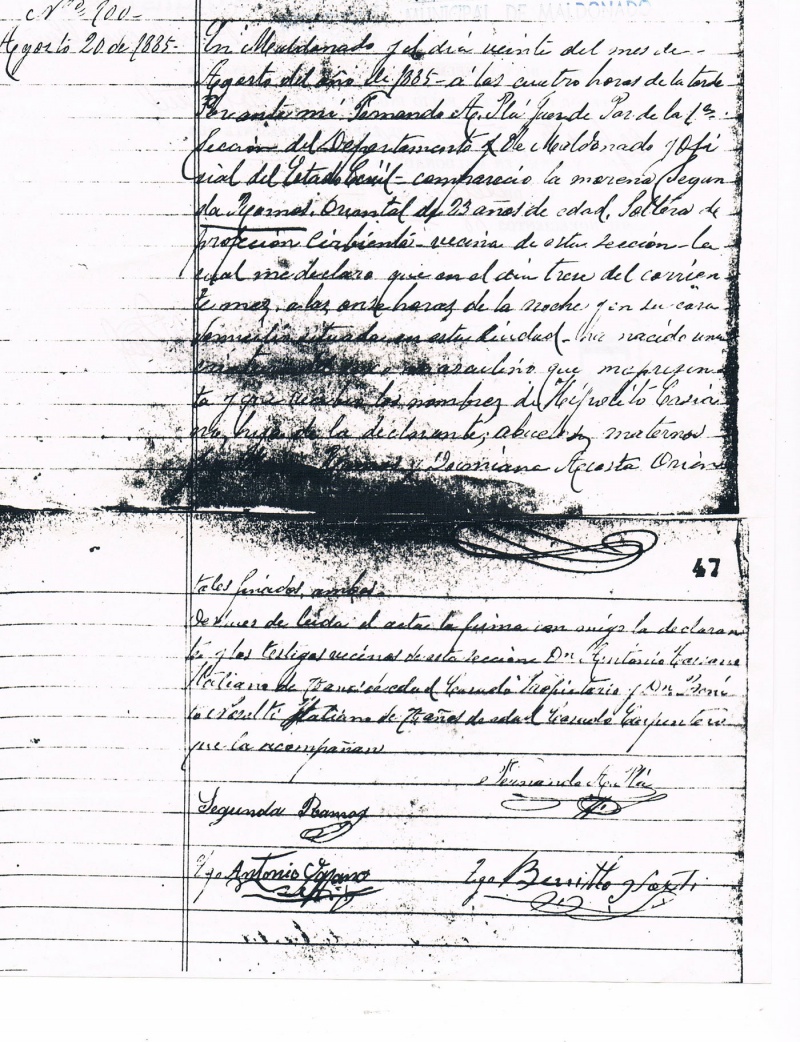 MUNICIPAL DE MALDONADO
Nº 100-
Agosto 20 de 1885-
En Maldonado y el dia veinte del mes de-
Agosto del año de 1885- á las cuatro horas de la tarde
Por ante mi Fernando A. Plá Juez de Paz de la 1ª
Sección del Departamento de Maldonado y Ofi
cial del Estado Civil- compareció la morena Segun
da Ramos, Oriental de 23 años de edad, Soltera de
profeción Cirbienta- vecina de esta sección- la
cual me declaro que en el dia trece del corrien
te mes, a las onse horas de la noche y en su casa
domicilio situada en esta Ciudad- ha nacido una
criatura masculino que me presen
ta y que los nombres de Hipolito Casia
no, hijo de la declarante, abuelos maternos
Ramos y Damiana Acosta Orien
47
tales finados, ambos.
Despues de leida el acta la firma con migo la declaran
te y los testigos vecinos de esta sección Dn Antonio
Italiano de edad Casado Propietario y Dn Beni
to Italiano de años de edad Casado Carpintero
que la acompañan
Fernando A. Plá
Segunda Ramos
Tgo Antonio
Tgo Benitto